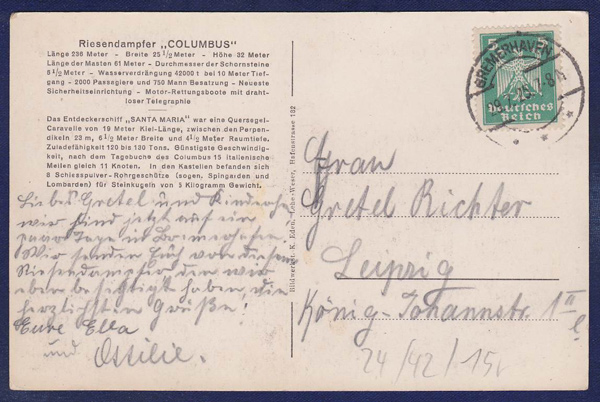 Riesendampfer „COLUMBUS"
Länge 236 Meter - Breite 25 1/2 Meter - Höhe 32 Meter
Länge der Masten 61 Meter - Durchmesser der Schornsteine
5 1/2 Meter - Wasserverdrängung 42000 t bei 10 Meter Tief-
gang - 2000 Passagiere und 750 Mann Besatzung - Neueste
Sicherheitseinrichtung - Motor-Rettungsboote mit draht-
loser Telegraphie
Das Entdeckerschiff „SANTA MARIA" war eine Quersegel-
Caravelle von 19 Meter Kiel-Länge, zwischen den Perpen-
dikeln 23 m, 6 1/2 Meter Breite und 4 1/2 Meter Raumtiefe.
Zuladefähigkeit 120 bis 130 Tons. Günstigste Geschwindig-
keit, nach dem Tagebuche des Columbus 15 italienische
Meilen gleich 11 Knoten. In den Kastellen befanden sich
8 Schlesspulver-Rohrgeschütze (sogen. Spingarden und
Lombarden) für Steinkugeln von 5 Kilogramm Gewicht.
Liebes Gretel und Kinderchen
wir sind jetzt auf ein
paar Tage in Bremerhafen.
Wir senden Euch von diesem
Riesendampfer den wir
eben besichtigt haben, die
herzlichsten Grüße!
Eure Ella
und Ottilie.
Bildwerger. K. Eden, Lehe-Weser, Hafenstrasse 162
5
Deutsches
Reich
BREMERHAVEN
7-8 N
Frau
Gretel Richter
Leipzig
König-Johannstr. 1
24/42/15